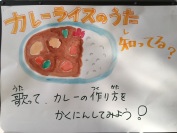 カレーライスのうた
知ってる?
うた
歌って、カレーの作り方を
かくにんしてみよう!